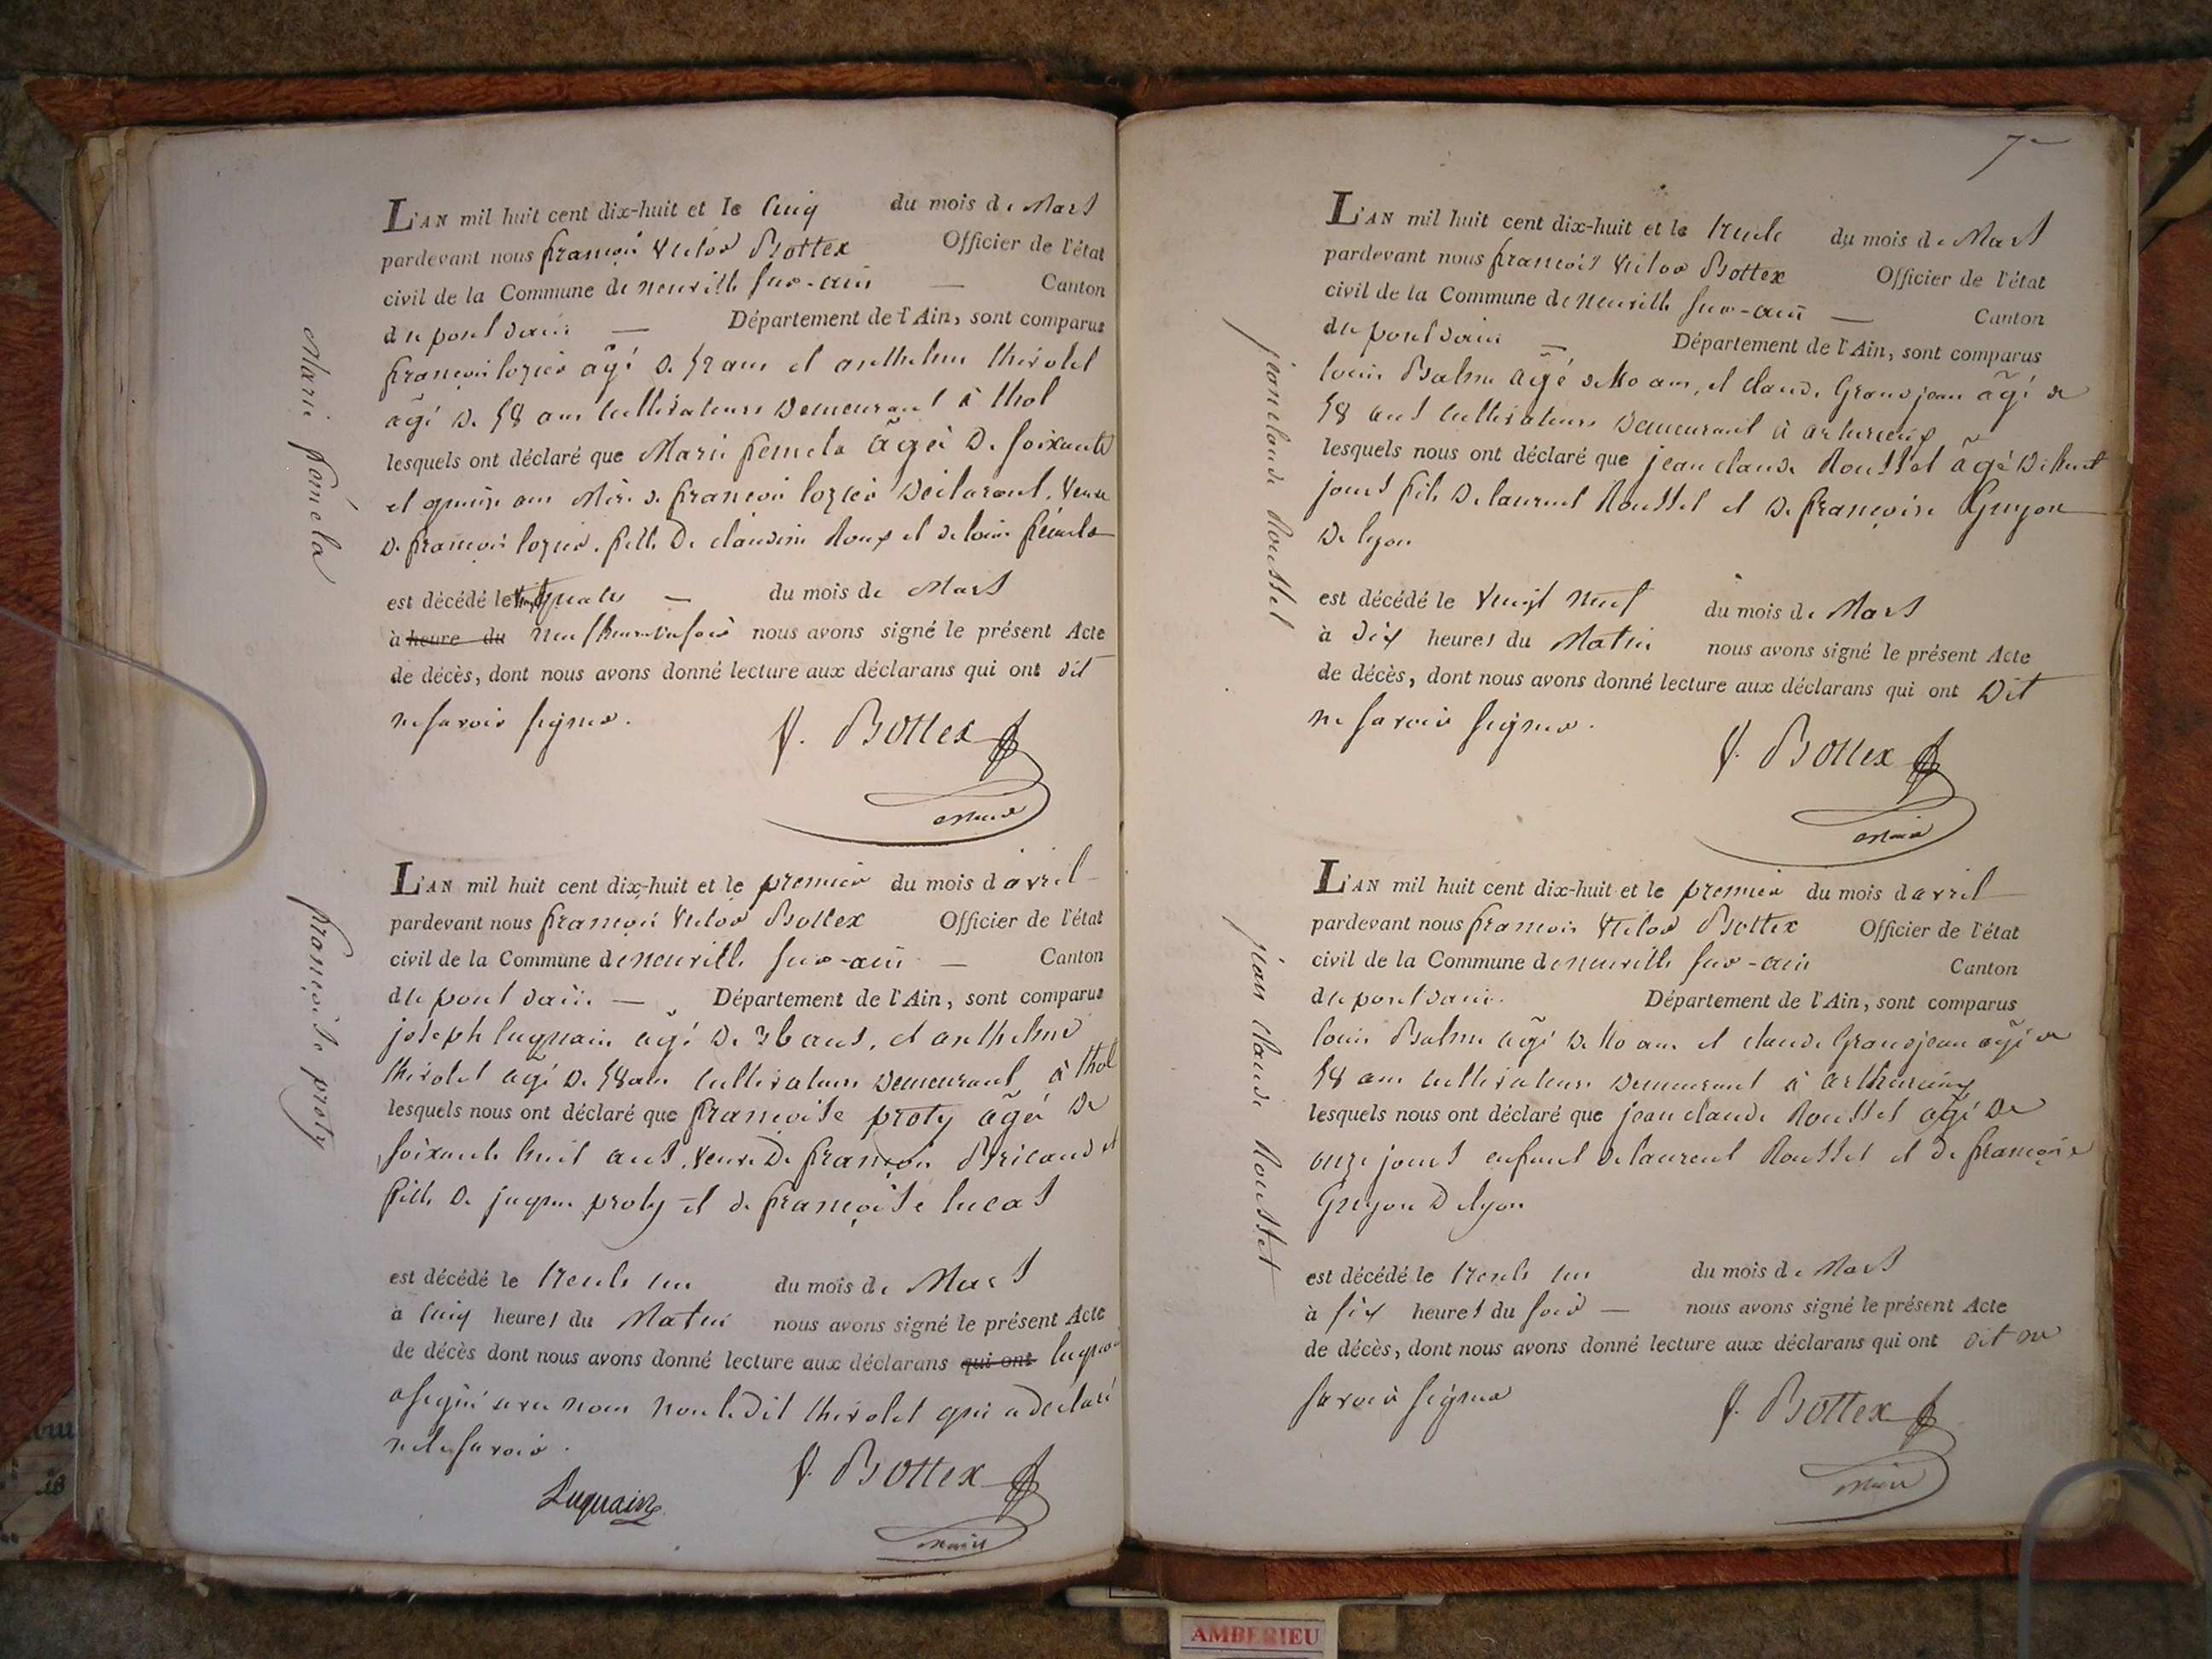 Marie fémela
L'AN mil huit cent dix-huit et le cinq du mois de Mars
pardevant nous françois victor Bottex Officier de l'état
civil de la Commune de neuville sur-ain — Canton
du pont dain — Département de l'Ain, sont comparus
françois lozier agé de 52 ans et anthelme thivolet
agé de 58 ans cultivateurs Demeurant à thol
lesquels ont déclaré que Marie femela agée De soixante
et quinze ans Mère de françois lozier Déclarant, veuve
De françois lozier, fille De claudine Roux et de louis
est décédé le quatre — du mois de Mars
à heure du neuf heures du soir nous avons signé le présent Acte
de décès, dont nous avons donné lecture aux déclarans qui ont dit
ne savoir signer.
f. Bottex
maire
françoise proty
L'AN mil huit cent dix-huit et le premier du mois d avril
pardevant nous françois victor Bottex Officier de l'état
civil de la Commune de neuville sur-ain — Canton
du pont dain — Département de l'Ain, sont comparus
joseph luquain agé De 36 ans, et anthelme
thivolet agé De 58 ans cultivateurs Demeurant à thol
lesquels nous ont déclaré que françoise proty agée De
soixante huit ans, veuve De françois Bricaud et
fille De proty et de françoise lucas
est décédé le trente un du mois de Mars
à cinq heures du Matin nous avons signé le présent Acte
de décès dont nous avons donné lecture aux déclarans qui ont luquain
a signé avec nous non le dit thivolet qui a déclaré
ne le savoir.
Luquain
f. Bottex
maire
7
jean claude Roussel
L'AN mil huit cent dix-huit et le trente du mois de Mars
pardevant nous françois victor Bottex Officier de l'état
civil de la Commune de neuville sur-ain — Canton
du pont dain — Département de l'Ain, sont comparus
louis Balme agé de 40 ans, et claude Grandjean agé de
58 ans cultivateurs Demeurant à
lesquels nous ont déclaré que jean claude Roussel agé De huit
jours fils De laurent Roussel et De françoise Guyon
De lyon
est décédé le vingt neuf du mois de Mars
à dix heures du Matin nous avons signé le présent Acte
de décès, dont nous avons donné lecture aux déclarans qui ont Dit
ne savoir signer.
f. Bottex
maire
jean Claude Roussel
L'AN mil huit cent dix-huit et le premier du mois d avril
pardevant nous françois victor Bottex Officier de l'état
civil de la Commune de neuville sur-ain Canton
du pont dain. Département de l'Ain, sont comparus
louis Balme agé De 40 ans et claude Grandjean agé de
58 ans cultivateurs Demeurant à
lesquels nous ont déclaré que jean claude Roussel agé De
onze jours enfant de laurent Roussel et de françoise
Guyon De lyon
est décédé le trente un du mois de Mars
à six heures du soir — nous avons signé le présent Acte
de décès, dont nous avons donné lecture aux déclarans qui ont dit ne
savoir signer
f. Bottex
maire
AMBERIEU